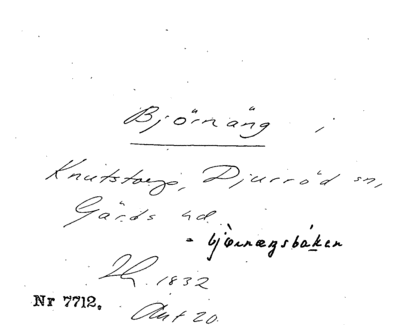 Björnäng i
Knutstorp, Djurröd sn,
Gärds hd
- bjö̀rnægsbáken
Lh. 1832
Nr 7712.
Akt 20